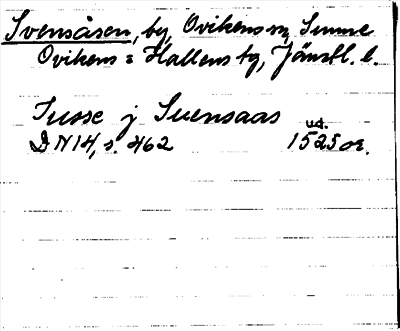 Svensåsen, by, Ovikens sn, Sunne
Ovikens & Hallens tg, Jämtl. l.
Tusse j Suensaas
ud.
DN 14, s. 462 1525 or.